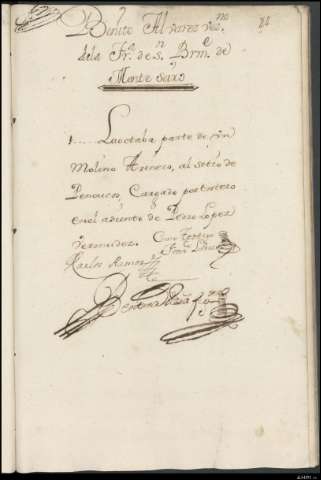 Benito Alvarez vez.no
dela Fra. de Sn. Brme. de
Monte seiro
1..... La octaba parte de Vn
Molino Arinero, al sitio de
Penoucos, Cargado por entero
en el asiento de Pedro Lopez
Vermudez. Como testigo
Carlos Ramos